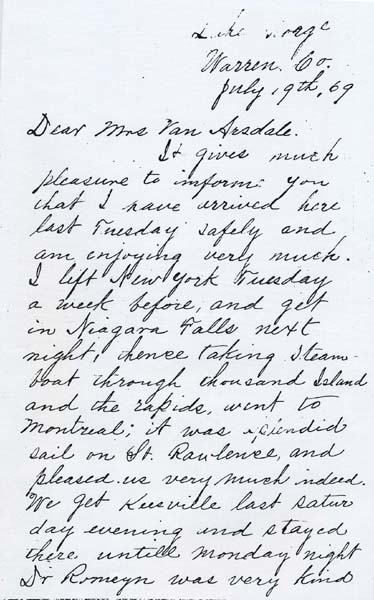 Lake George
Warren. Co.
July 19th, 69
Dear Mrs Van Arsdale.
It gives much
pleasure to inform: you
that I have arrived here
last Tuesday safely and
am enjoying very much.
I lift New York Tuesday
a week before, and get
in Niagara Falls next
night, hence taking Steam-
boat through thousand Island
and the rapids, went to
Montreal; it was splendid
sail on St. Rawlence, and
pleased us very much indeed.
We get Keesville last satur
day evening and stayed
there untill monday night
Dr Romeyn was very kind